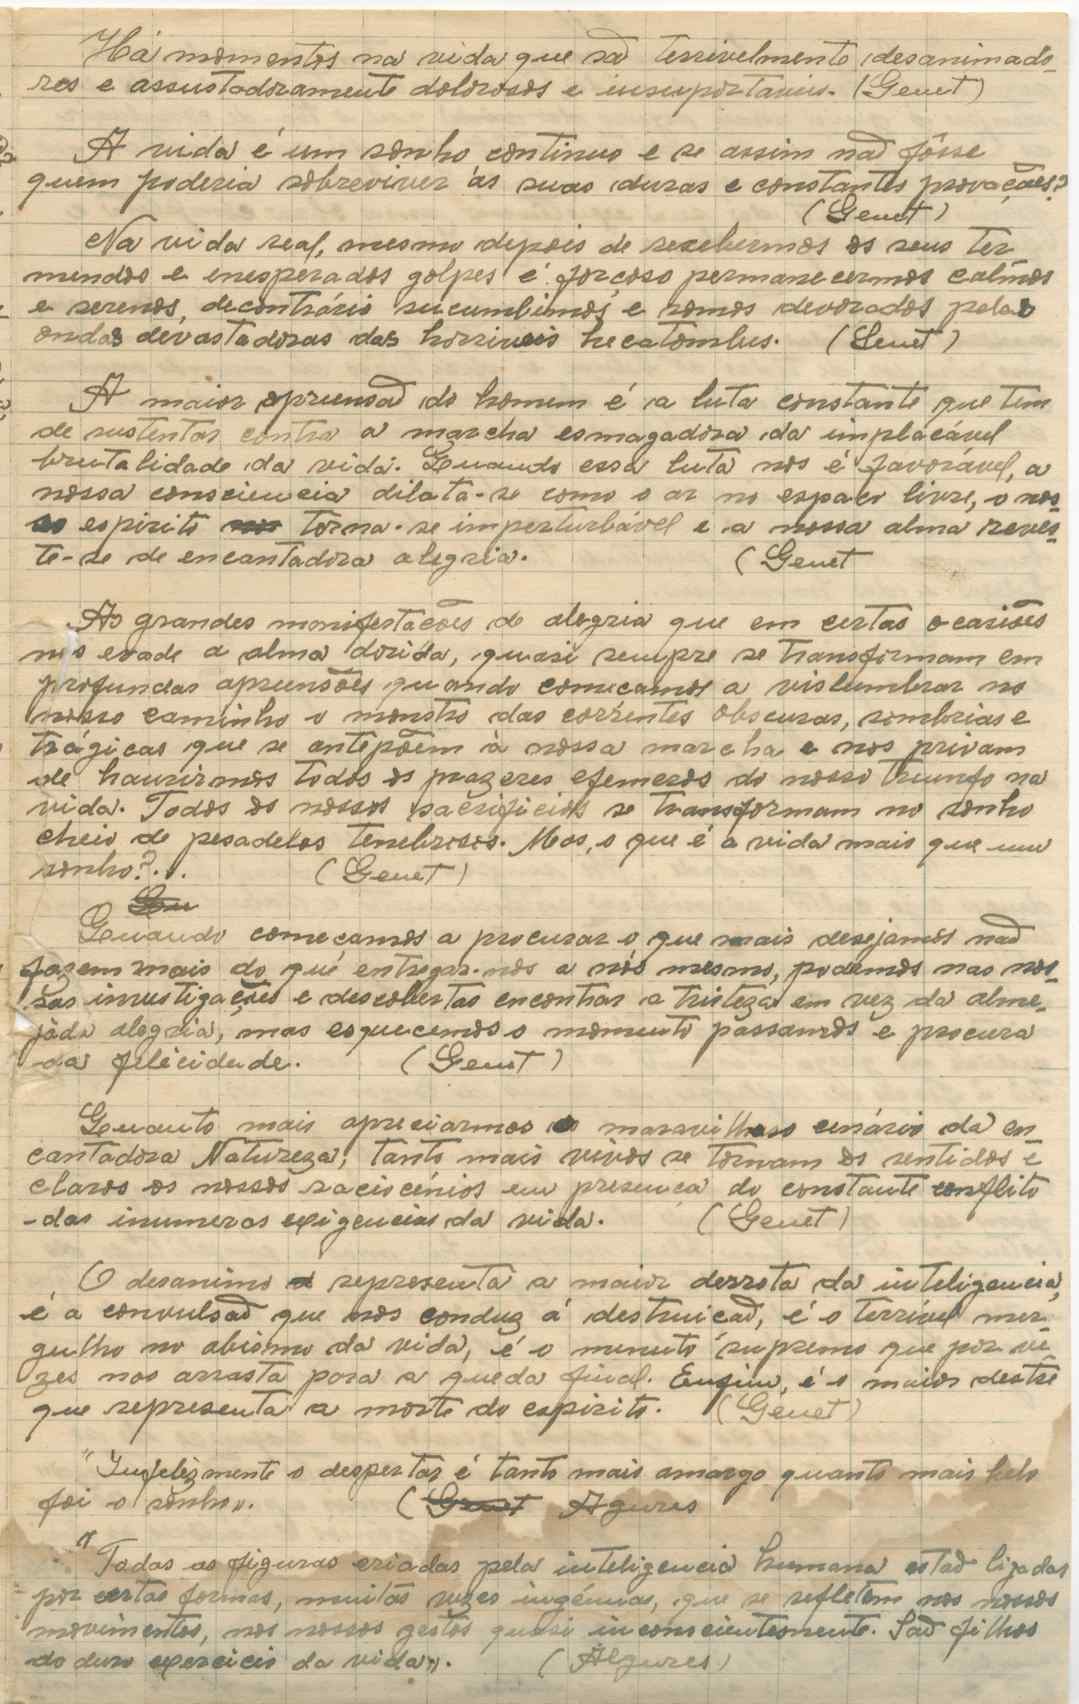 Há momentos na vida que são terrivelmente desanimado-
res e assustadoramente dolorosos e insuportaveis. (Genet)
A vida é um sonho continuo e se assim não fôsse
quem poderia sobreviver ás suas duras e constantes provações?
(Genet)
Na vida real, mesmo depois de recebermos os seus ter
mendos e inesperados golpes é forçoso permanecermos calmos
e serenos, decontrário sucumbimos e somos devorados pelas
ondas devastadoras das horriveis hecatombes. (Genet)
A maior apreensão do homem é a luta constante que tem
de sustentar contra a marcha esmagadora da implacável
brutalidade da vida. Quando essa luta nos é favorável, a
nossa consciencia dilata-se como o ar no espaço livre, o nos-
so espirito torna-se imperturbável e a nossa alma reves-
te-se de encantadora alegria. (Genet
As grandes manifestacões de alegria que em certas ocasiões
nos evade a alma dorida, quasi sempre se transformam em
profundas apreensões quando comecamos a vislumbrar no
nosso caminho o monstro das correntes obscuras, sombrias e
trágicas que se antepõem à nossa marcha e nos privam
de haurirmos todos os prazeres efemeros do nosso triunfo na
vida. Todos os nossos sacrificios se transformam no sonho
cheio de pesadelos tenebrosos. Mas, o que é a vida mais que um
sonho?... (Genet)
Quando comecamos a procurar o que mais desejamos não
fazem mais do quê entregar-nos a nós mesmo, podemos nas nos-
sas investigações e descobertas encontrar a tristeza em vez da alme-
jada alegria, mas esquecemos o momento passamos e procura
da felicidade. (Genet)
Quanto mais apreciarmos o maravilhoso cenário da en
cantadora Natureza, tanto mais vivos se tornam os sentidos e
claros os nossos raciocénios em presença do constante conflito
-das inumeras exigencias da vida. (Genet)
O desanimo representa a maior derrota da inteligencia,
é a convulsão que nos conduz á destruicão, é o terrivel mer-
gulho no abismo da vida, é o minuto supremo que por ve-
zes nos arrasta para a queda final. Enfim, é o maior destre
que representa a morte do espirito. (Genet)
"Infelizmente o despertar é tanto mais amargo quanto mais belo
foi o sonho". (Genet Agures
"Todas as figuras criadas pela inteligencia humana estão ligadas
por certas formas, muitas vezes ingénuas, que se refletem nos nossos
movimentos, nos nossos gestos quasi inconscientemente. São filhos
do duro exercicio da vida". (Algures)